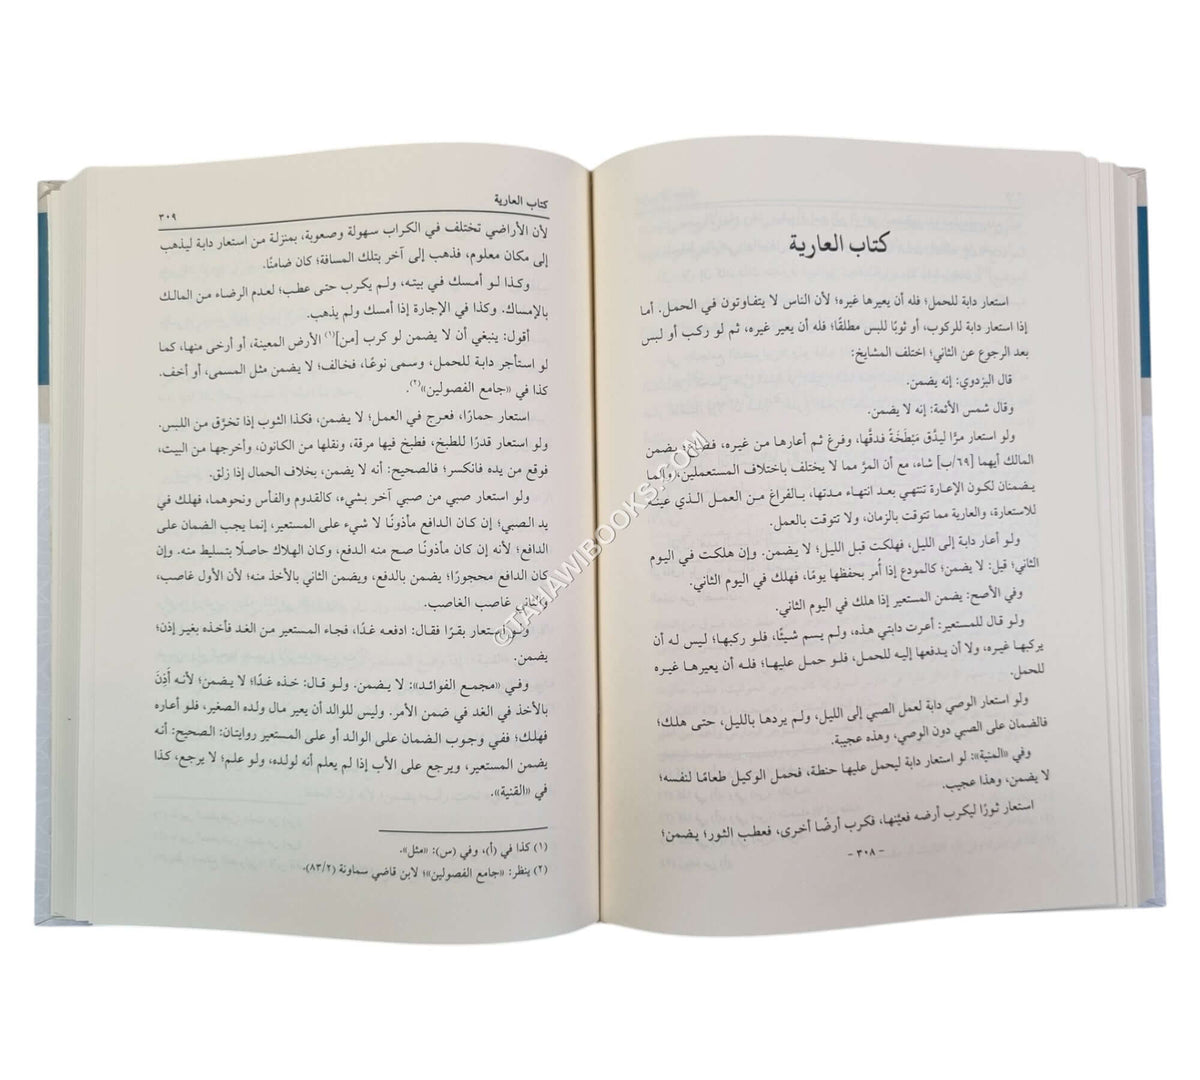 كتاب العارية
استعار دابة للحمل؛ فله أن يعيرها غيره؛ لأن الناس لا يتفاوتون في الحمل. أما
إذا استعار دابة للركوب، أو ثوبًا للبس مطلقًا؛ فله أن يعير غيره، ثم لو ركب أو لبس
بعد الرجوع عن الثاني؛ اختلف المشايخ:
قال البزدوي: إنه يضمن.
وقال شمس الأئمة: إنه لا يضمن.
ولو استعار مرًّا ليدُق مَبْطَخَةً فدقَّها، وفرغ ثم أعارها من غيره، فضاع؛ يضمن
المالك أيهما [٦٩/ب] شاء، مع أن المرَّ مما لا يختلف باختلاف المستعملين، وإنما
يضمنان لكون الإعارة تنتهي بعد انتهاء مدتها، بالفراغ من العمل الذي عينه
للاستعارة، والعارية مما تتوقت بالزمان، ولا تتوقت بالعمل.
ولو أعار دابة إلى الليل، فهلكت قبل الليل؛ لا يضمن. وإن هلكت في اليوم
الثاني؛ قيل: لا يضمن؛ كالمودع إذا أُمر بحفظها يومًا، فهلك في اليوم الثاني.
وفي الأصح: يضمن المستعير إذا هلك في اليوم الثاني.
ولو قال للمستعير: أعرت دابتي هذه، ولم يسم شيئًا، فلو ركبها؛ ليس له أن
يركبها غيره، ولا أن يدفعها إليه للحمل، فلو حمل عليها؛ فله أن يعيرها غيره
للحمل.
ولو استعار الوصي دابة لعمل الصبي إلى الليل، ولم يردها بالليل، حتى هلك؛
فالضمان على الصبي دون الوصي، وهذه عجيبة.
وفي «المنية»: لو استعار دابة ليحمل عليها حنطة، فحمل الوكيل طعامًا لنفسه؛
لا يضمن، وهذا عجيب.
استعار ثورًا ليكرب أرضه فعيَّنها، فكرب أرضًا أخرى، فعطب الثور؛ يضمن؛
- ٣٠٨ -
كتاب العارية
٣٠٩
لأن الأراضي تختلف في الكراب سهولة وصعوبة، بمنزلة من استعار دابة ليذهب
إلى مكان معلوم، فذهب إلى آخر بتلك المسافة؛ كان ضامنًا.
وكذا لو أمسك في بيته، ولم يكرب حتى عطب؛ لعدم الرضاء من المالك
بالإمساك. وكذا في الإجارة إذا أمسك ولم يذهب.
أقول: ينبغي أن لا يضمن لو كرب [من](١) الأرض المعينة، أو أرخى منها، كما
لو استأجر دابة للحمل، وسمى نوعًا، فخالف؛ لا يضمن مثل المسمى، أو أخف.
كذا في «جامع الفصولين»(٢).
استعار حمارًا، فعرج في العمل؛ لا يضمن، فكذا الثوب إذا تخرَّق من اللبس.
ولو استعار قدرًا للطبخ، فطبخ فيها مرقة، ونقلها من الكانون، وأخرجها من البيت،
فوقع من يده فانكسر؛ فالصحيح: أنه لا يضمن، بخلاف الحمال إذا زلق.
ولو استعار صبي من صبي آخر بشيء، كالقدوم والفأس ونحوهما، فهلك في
يد الصبي؛ إن كان الدافع مأذونًا لا شيء على المستعير، إنما يجب الضمان على
الدافع؛ لأنه إن كان مأذونًا صح منه الدفع، وكان الهلاك حاصلًا بتسليط منه. وإن
كان الدافع محجورًا؛ يضمن بالدفع، ويضمن الثاني بالأخذ منه؛ لأن الأول غاصب،
والثاني غاصب الغاصب.
ولو استعار بقرًا فقال: ادفعه غدًا، فجاء المستعير من الغد فأخذه بغير إذن؛
يضمن.
وفي «مجمع الفوائد»: لا يضمن. ولو قال: خذه غدًا؛ لا يضمن؛ لأنه أَذِنَ
بالأخذ في الغد في ضمن الأمر. وليس للوالد أن يعير مال ولده الصغير، فلو أعاره
فهلك؛ ففي وجوب الضمان على الوالد أو على المستعير روايتان: الصحيح: أنه
يضمن المستعير، ويرجع على الأب إذا لم يعلم أنه لولده، ولو علم؛ لا يرجع، كذا
في «القنية».
(١) كذا في (أ)، وفي (س): «مثل».
(٢) ينظر: «جامع الفصولين»؛ لابن قاضي سماونة (٨٣/٢).
©TAHAWIBOOKS.COM